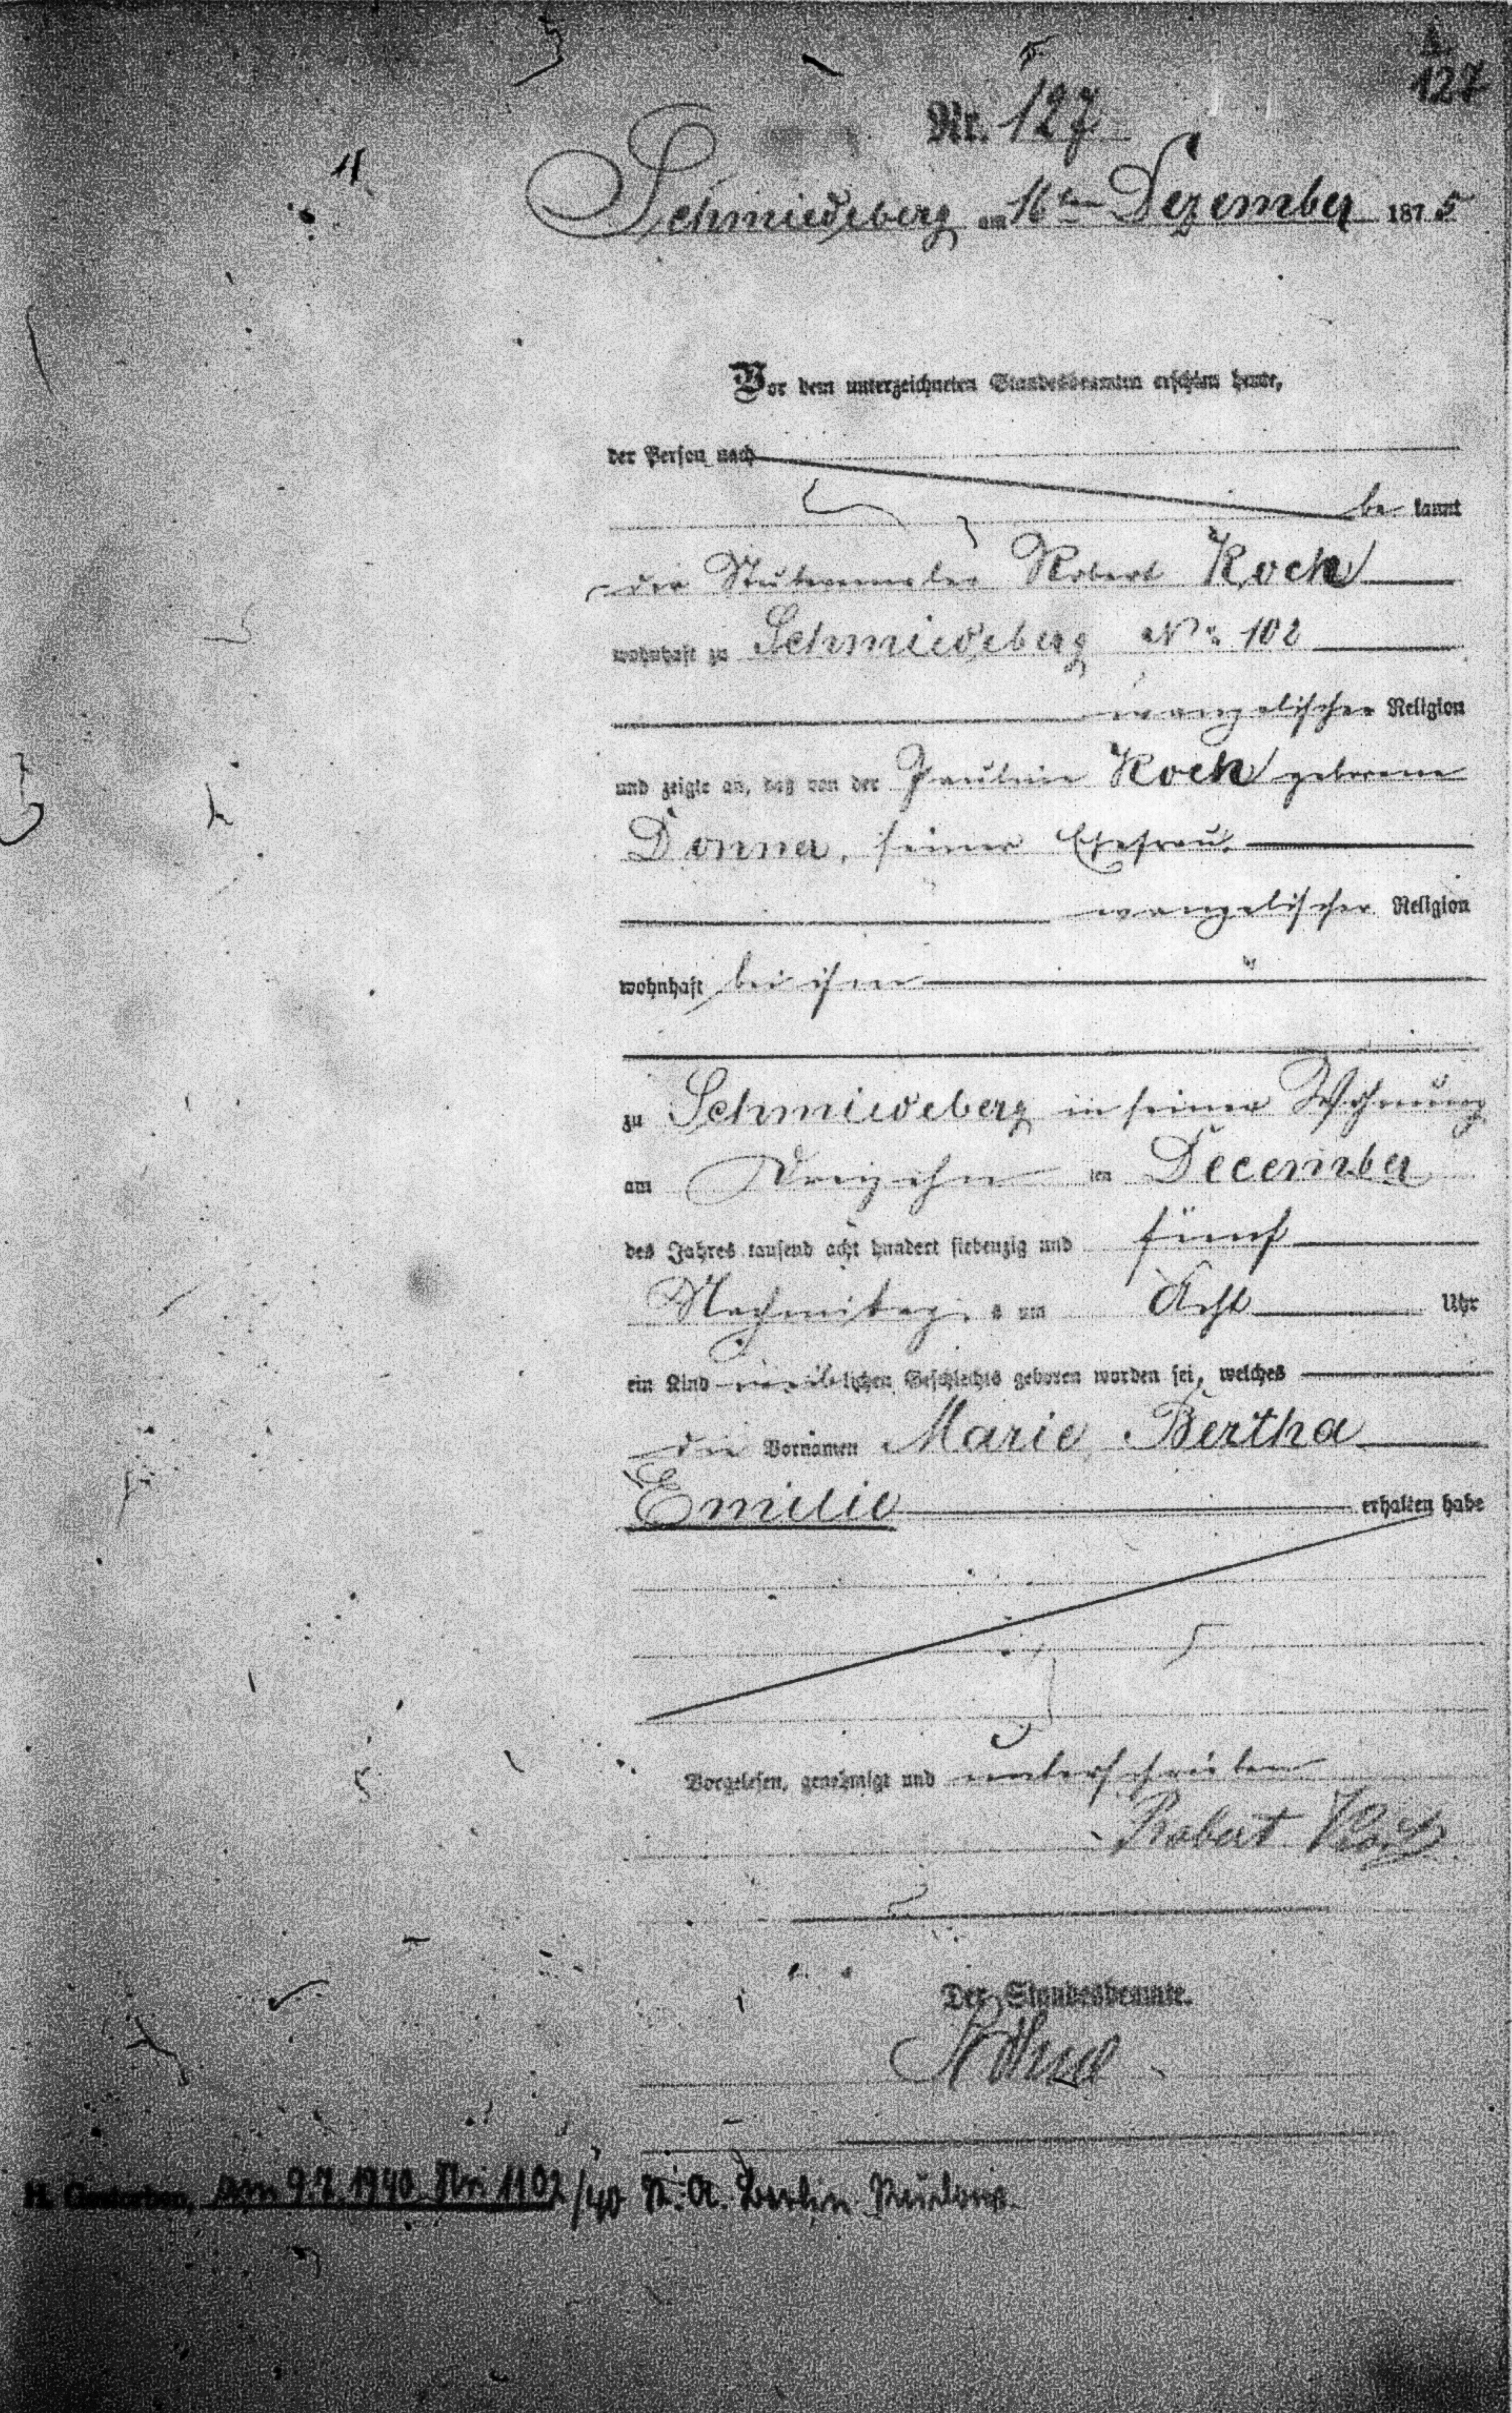 127
Nr. 127
Schmiedeberg am 16ten Dezember 1875
Vor dem unterzeichneten Standesbeamten erschien heute,
der Person nach
be kannt
der Stubenmaler Robert Koch
wohnhaft zu Schmiedeberg No 102
evangelischer Religion
und zeigte an, daß von der Pauline Koch geborene
Donner, seiner Ehefrau,
evangelischer Religion
wohnhaft bei ihm
zu Schmiedeberg in seiner Wohnung
am Dreizehn ten December
des Jahres tausend acht hundert siebenzig und fünf
Nachmittag s um Acht Uhr
ein Kind weiblichen Geschlechts geboren worden sei, welches
die Vornamen Marie Bertha
Emilie erhalten habe
Vorgelesen, genehmigt und unterschrieben
Robert Koch
Der Standesbeamte.
H. Gestorben, am 9.7.1940 Nr. 1102/40 St. A. Berlin